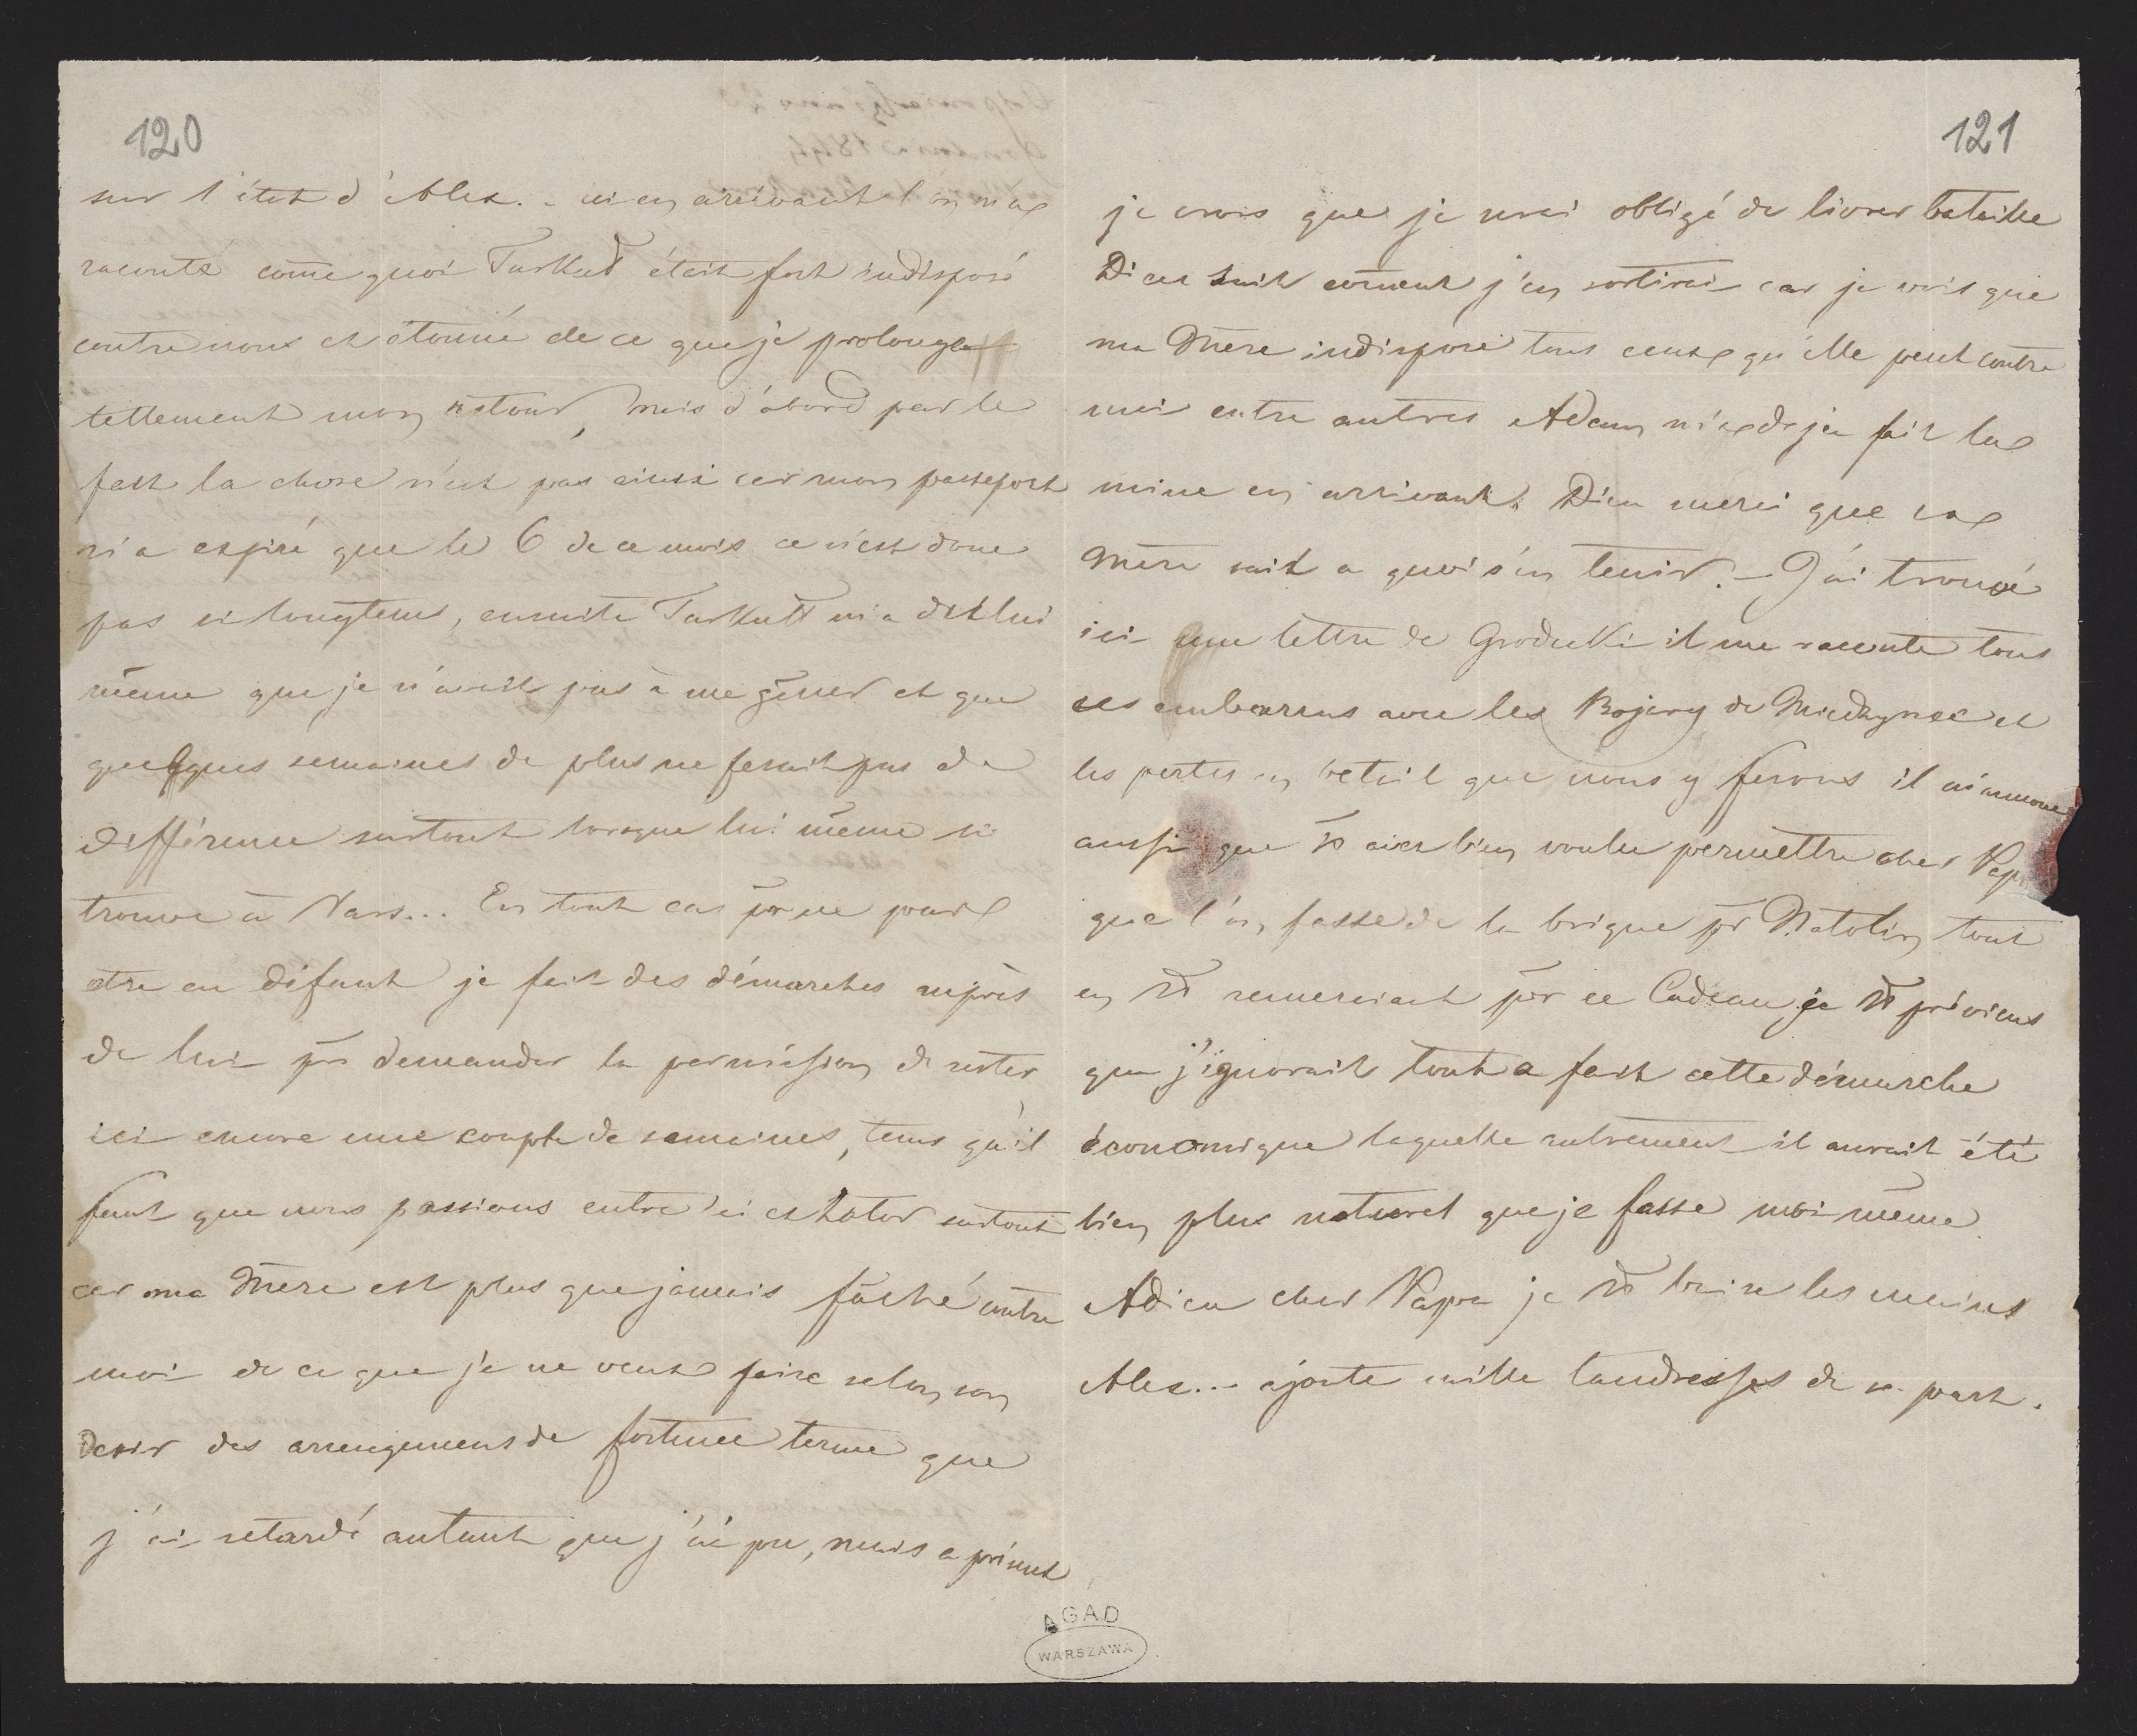 120
sur l'état d'Alex. – ici en arrivant l'on m'a
raconté come quoi Turkuł était fort indisposé
contre nous et étonné de ce que je prolonge
tellement mon retour, mais d'abord par le
fait la chose n'est pas ainsi car mon passeport
n'a expiré que le 6 de ce mois ce n'est donc
pas si longtems, ensuite Turkułł m'a dit lui
même que je n'avait pas à me gêner et que
quelques semaines de plus ne ferait pas de
différence surtout lorsque lui même se
trouve à Vars... En tout cas pr ne pas
etre en défaut je fait des démarches auprès
de lui pr demander la permission de rester
ici encore une couple de semaines, tems qu'il
faut que nous passions entre ici et surtout
car ma Mère est plus que jamais fâché contre
moi de ce que je ne veut faire selon son
desir des arrengemens de fortune terme que
j'ai retardé autant que j'ai pu, mais a présent
121
je crois que je serai obligé de livrer bataille
Dieu sait coment j'en sortirai car je vois que
ma Mère indispose tous ceux qu'elle peut contre
moi entre autres Adam m'a deja fait la
mine en arrivant. Dieu merci que sa
Mère sait a quoi s'en tenir. – J'ai trouvé
ici une lettre de Grodecki il me raconte tous
ses embarras avec les Bojary de et
les pertes en betail que nous y ferons il m'annonce
aussi que vs avez bien voulu permettre cher Pap
que l'on fasse de la brique pr Natolin tout
en vs remerciant pr ce Cadeau je vs préviens
que j'ignorait tout a fait cette démarche
économique laquelle autrement il aurait été
bien plus naturel que je fasse moi même
Adieu cher Papa je vs baise les mains
Alex... ajoute mille tendresses de sa part.
AGAD
WARSZAWA